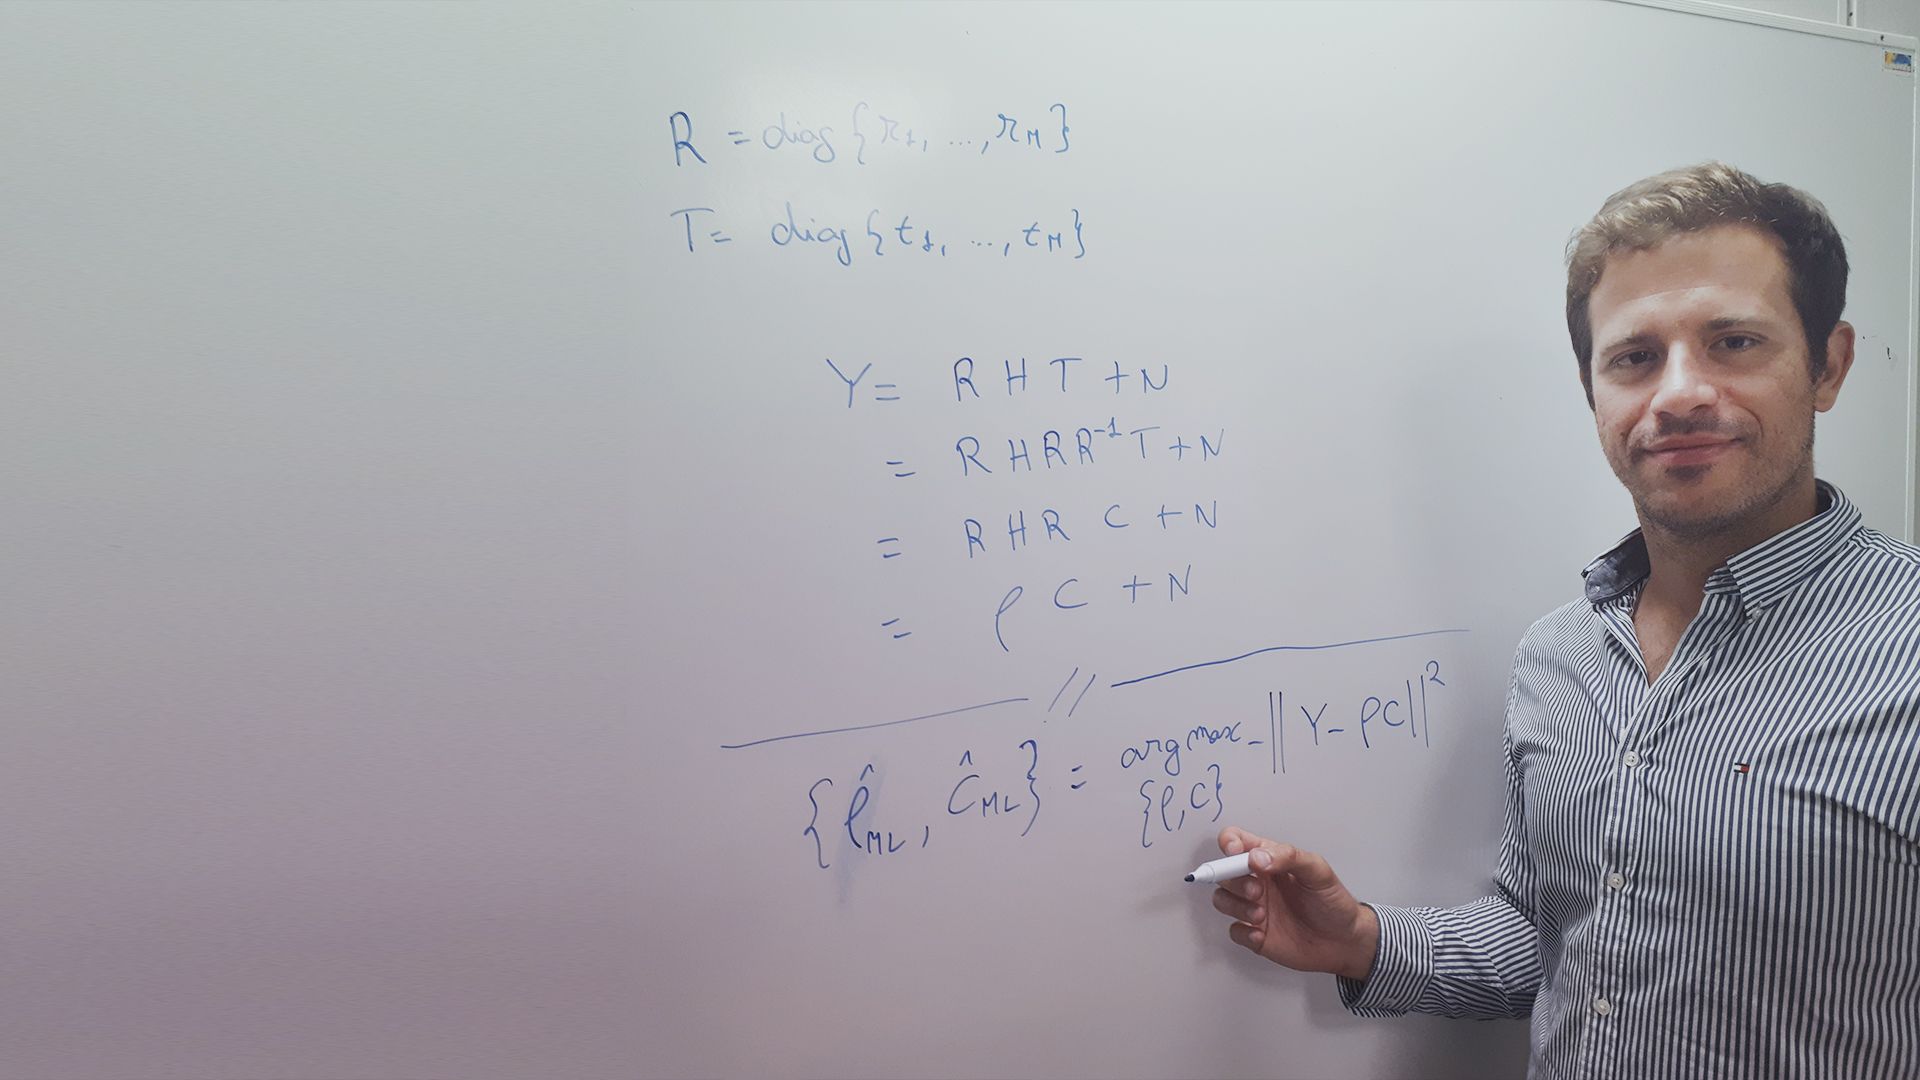 R = diag {r₁, ..., r_M}
T = diag {t₁, ..., t_M}
Y = R H T + N
= R H R R⁻¹ T + N
= R H R C + N
= ρ C + N
//
{ρ̂_ML, Ĉ_ML} = arg max - || Y - ρC ||²
{ρ, C}